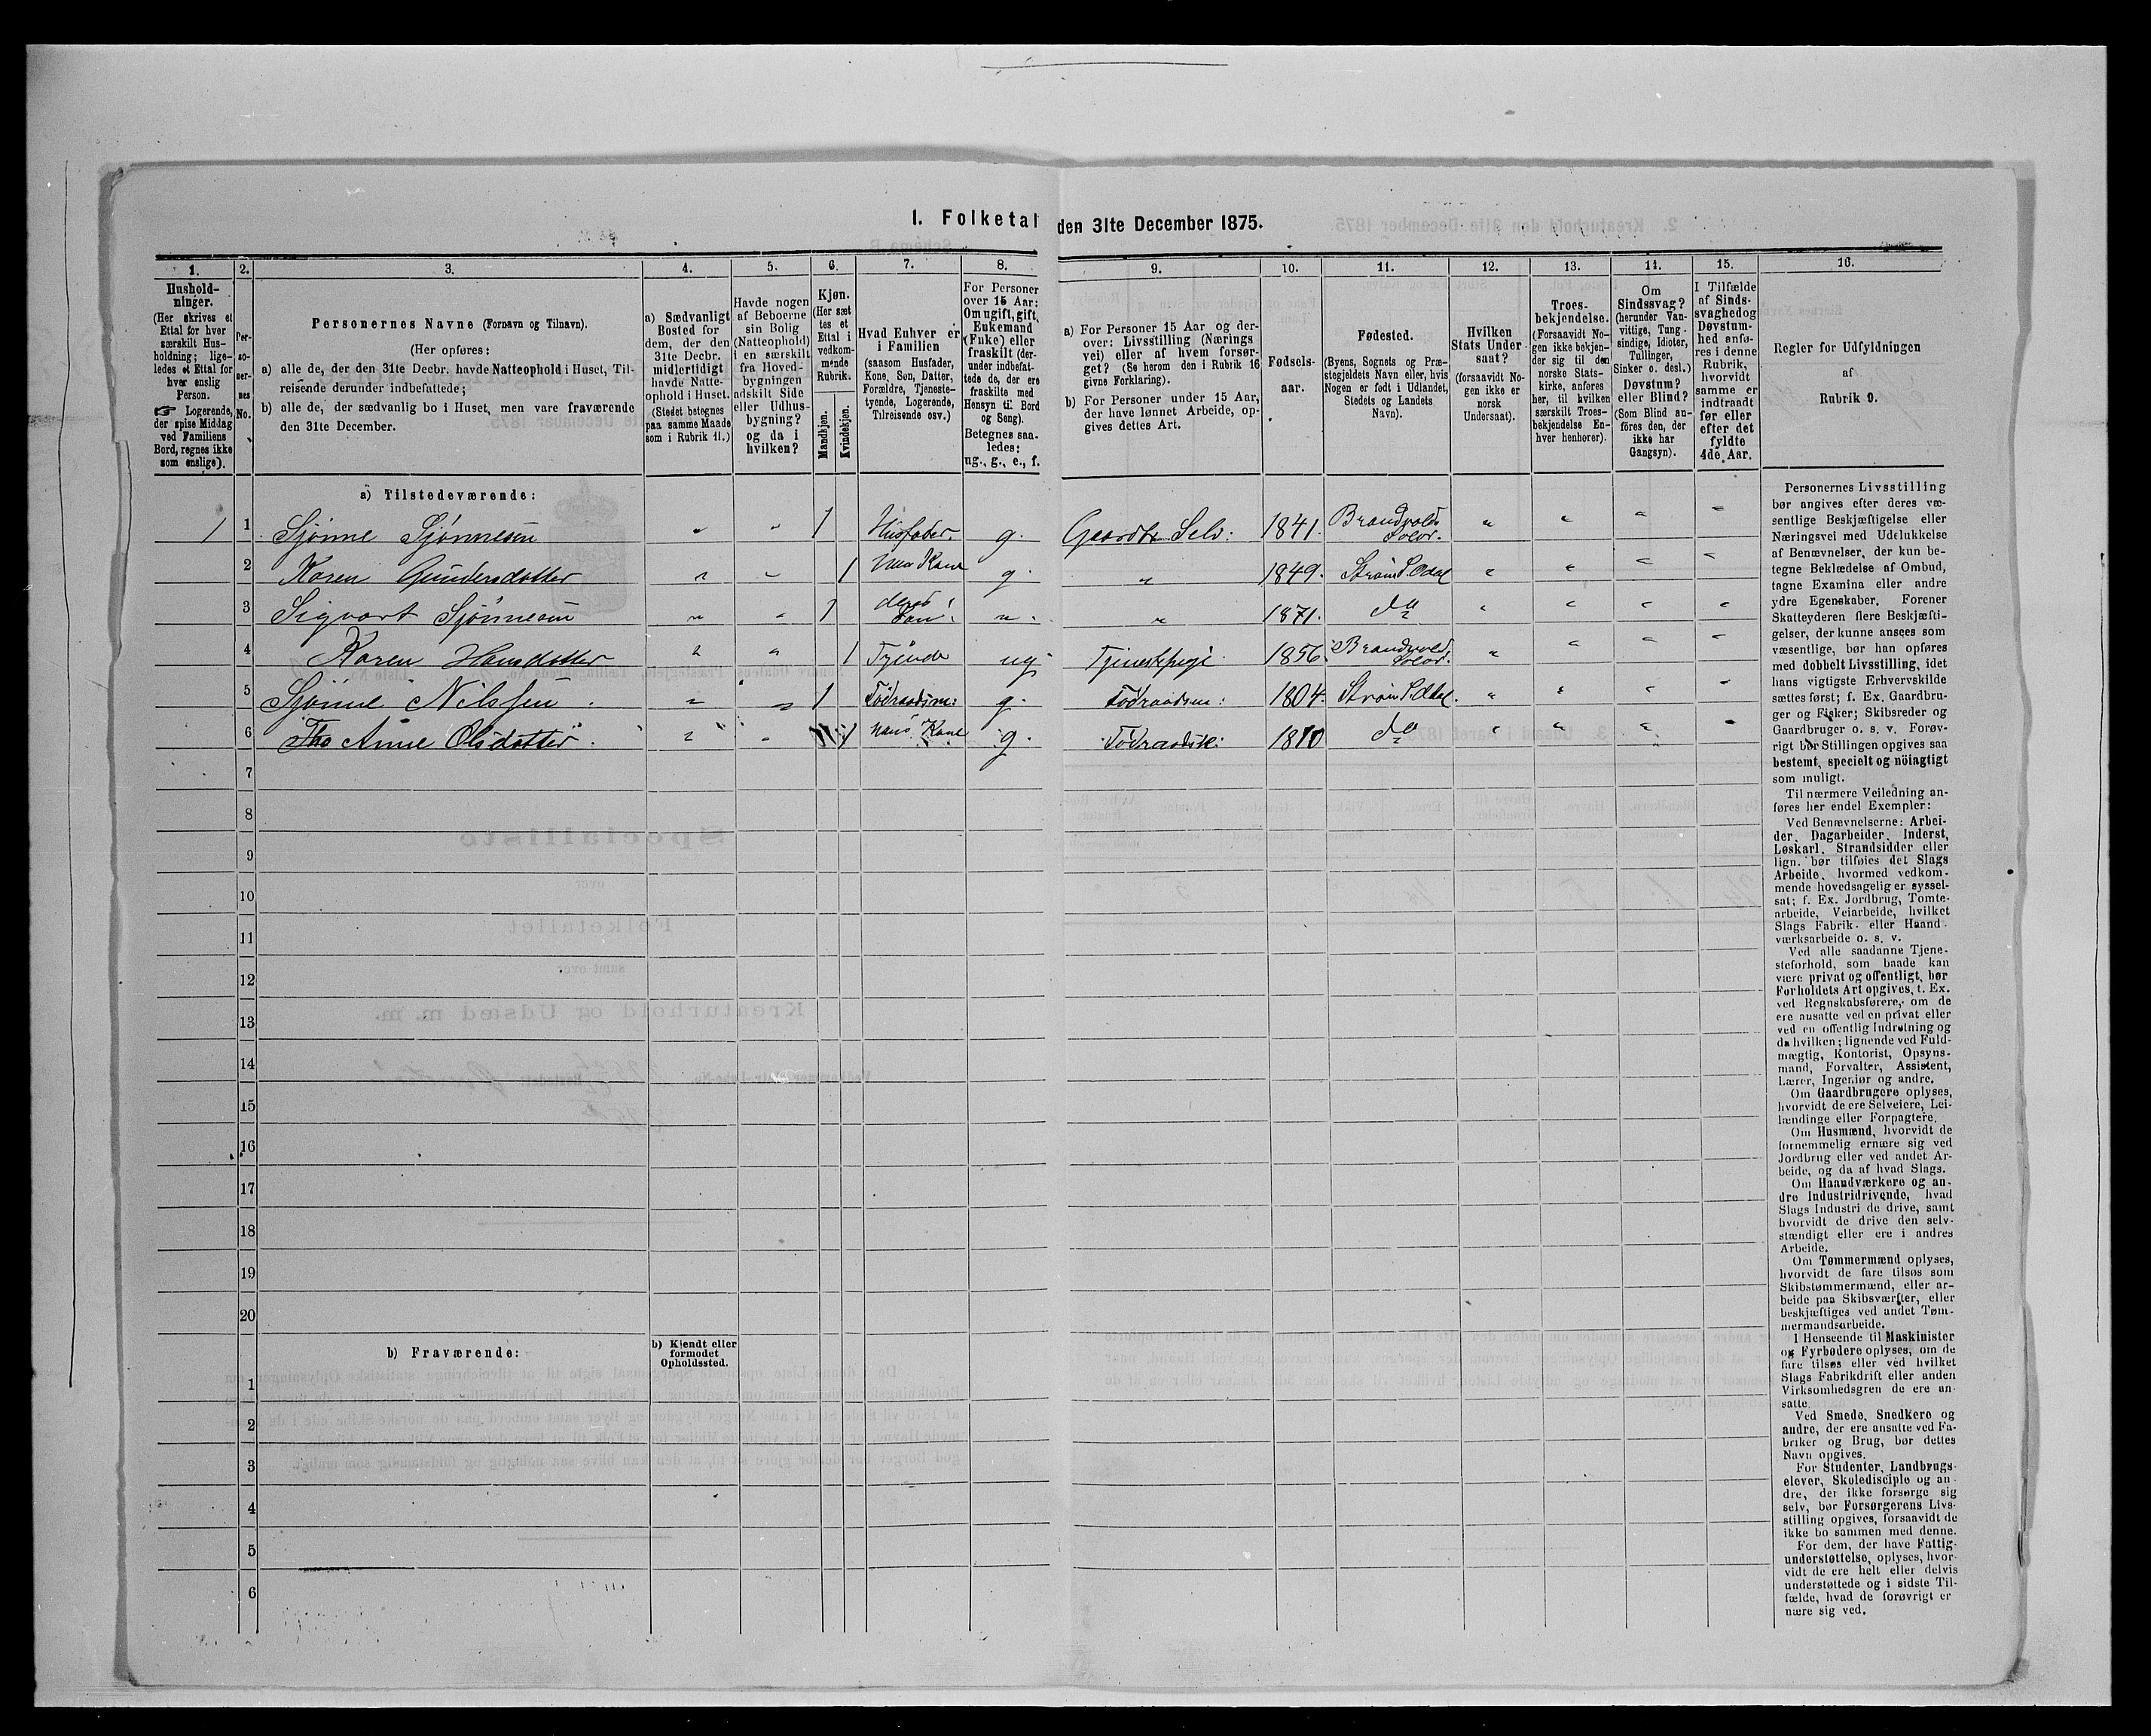 1. Folketal den 31te December 1875.
1. 2. 3. 4. 5. 6. 7. 8. 9. 10. 11. 12. 13. 14. 15. 16.
Hushold-
ninger.
(Her skrives et
Ettal for hver
særskilt Hus-
holdning; lige-
ledes et Ettal for
hver enslig
Person.
☞ Logerende,
der spise Middag
ved Familiens
Bord, regnes ikke
som enslige).
Per-
so-
ner-
nes
No.
Personernes Navne (Fornavn og Tilnavn).
(Her opføres:
a) alle de, der den 31te Decbr. havde Natteophold i Huset, Til-
reisende derunder indbefattede;
b) alle de, der sædvanlig bo i Huset, men vare fraværende
den 31te December.
a) Sædvanligt
Bosted for
dem, der den
31te Decbr.
midlertidigt
havde Natte-
ophold i Huset.
(Stedet betegnes
paa samme Maade
som i Rubrik 11.)
Havde nogen
af Beboerne
sin Bolig
(Natteophold)
i en særskilt
fra Hoved-
bygningen
adskilt Side
eller Udhus-
bygning?
og da i
hvilken?
Kjøn.
(Her sæt
tes et
Ettal i
vedkom-
mende
Rubrik.
Mandkjøn.
Kvindekjøn.
Hvad Enhver er
i Familien
(saasom Husfader,
Kone, Søn, Datter,
Forældre, Tjeneste-
tyende, Logerende,
Tilreisende osv.)
For Personer
over 15 Aar:
Om ugift, gift,
Enkemand
(Enke) eller
fraskilt (der-
under indbefat-
tede de, der ere
fraskilte med
Hensyn til Bord
og Seng).
Betegnes saa-
ledes:
ug., g., e., f.
a) For Personer 15 Aar og der-
over: Livsstilling (Nærings
vei) eller af hvem forsør-
get? (Se herom den i Rubrik 16
givne Forklaring).
b) For Personer under 15 Aar,
der have lønnet Arbeide, op-
gives dettes Art.
Fødsels-
aar.
Fødested.
(Byens, Sognets og Præ-
stegjeldets Navn eller, hvis
Nogen er født i Udlandet,
Stedets og Landets
Navn).
Hvilken
Stats Under-
saat?
(forsaavidt No-
gen ikke er
norsk
Undersaat).
Troes-
bekjendelse.
(Forsaavidt No-
gen ikke bekjen-
der sig til den
norske Stats-
kirke, anføres
her, til hvilken
særskilt Troes-
bekjendelse En-
hver henhører).
Om
Sindssvag?
(herunder Van-
vittige, Tung-
sindige, Idioter,
Tullinger,
Sinker o. desl.)
Døvstum?
eller Blind?
(Som Blind an-
føres den, der
ikke har
Gangsyn).
I Tilfælde
af Sinds-
svaghed og
Døvstum-
hed anfø-
res i denne
Rubrik,
hvorvidt
samme er
indtraadt
før eller
efter det
fyldte
4de Aar.
Regler for Udfyldningen
af
Rubrik 9.
a) Tilstedeværende:
1 1 Sjønne Sjønnesen " " 1 Husfader. g. Gaardbr Selv: 1841. Brandvold Solør. " " " "
2 Karen Gundersdotter " " 1 Hans Kone g. " 1849. Strøm S. Odal " " " "
3 Sigvart Sjønnesen " " 1 deres Søn " " 1871. do " " " "
4 Karen Hansdotter " " 1 Tjende ug Tjenestepige 1856. Brandvold Solør. " " " "
5 Sjønne Nilssen " " 1 Födraadsm: g. Födraadsm: 1804. Strøm S. Odal. " " " "
6 Anne Olsdotter " " 1 hans Kone g. Födraadsk: 1810 do " " " "
7
8
9
10
11
12
13
14
15
16
17
18
19
20
b) Fraværende:
b) Kjendt eller
formodet
Opholdssted.
1
2
3
4
5
6
Personernes Livsstilling
bør angives efter deres væ-
sentlige Beskjæftigelse eller
Næringsvei med Udelukkelse
af Benævnelser, der kun be-
tegne Beklædelse af Ombud,
tagne Examina eller andre
ydre Egenskaber. Forener
Skatteyderen flere Beskjæfti-
gelser, der kunne ansees som
væsentlige, bør han opføres
med dobbelt Livsstilling, idet
hans vigtigste Erhvervskilde
sættes først; f. Ex. Gaardbru-
ger og Fisker; Skibsreder og
Gaardbruger o. s. v. Forøv-
rigt bør Stillingen opgives saa
bestemt, specielt og nöiagtigt
som muligt.
Til nærmere Veiledning an-
føres her endel Exempler:
Ved Benævnelserne: Arbei-
der, Dagarbeider, Inderst,
Løskarl, Strandsidder eller
lign. bør tilføies det Slags
Arbeide, hvormed vedkom-
mende hovedsagelig er syssel-
sat; f. Ex. Jordbrug, Tomte-
arbeide, Veiarbeide, hvilket
Slags Fabrik- eller Haand-
værksarbeide o. s. v.
Ved alle saadanne Tjene-
steforhold, som baade kan
være privat og offentligt, bør
Forholdets Art opgives, t. Ex.
ved Regnskabsførere, om de
ere ansatte ved en privat eller
ved en offentlig Indretning og
da hvilken; lignende ved Fuld-
mægtig, Kontorist, Opsyns-
mand, Forvalter, Assistent,
Lærer, Ingeniør og andre.
Om Gaardbrugere oplyses,
hvorvidt de ere Selveiere, Lei-
lændinge eller Forpagtere.
Om Husmænd, hvorvidt de
fornemmelig ernære sig ved
Jordbrug eller ved andet Ar-
beide, og da af hvad Slags.
Om Haandværkere og an-
dre Industridrivende, hvad
Slags Industri de drive, samt
hvorvidt de drive den selv-
stændigt eller ere i andres
Arbeide.
Om Tømmermænd oplyses,
hvorvidt de fare tilsøs som
Skibstømmermænd, eller ar-
beide paa Skibsværfter, eller
beskjæftiges ved andet Tøm-
mermandsarbeide.
I Henseende til Maskinister
og Fyrbødere oplyses, om de
fare tilsøs eller ved hvilket
Slags Fabrikdrift eller anden
Virksomhedsgren de ere an-
satte.
Ved Smede, Snedkere og
andre, der ere ansatte ved Fa-
briker og Brug, bør dettes
Navn opgives.
For Studenter, Landbrugs-
elever, Skoledisciple og an-
dre, der ikke forsørge sig
selv, bør Forsørgerens Livs-
stilling opgives, forsaavidt de
ikke bo sammen med denne.
For dem, der have Fattig-
understøttelse, oplyses, hvor-
vidt de ere helt eller delvis
understøttede og i sidste Til-
fælde, hvad de forøvrigt er-
nære sig ved.